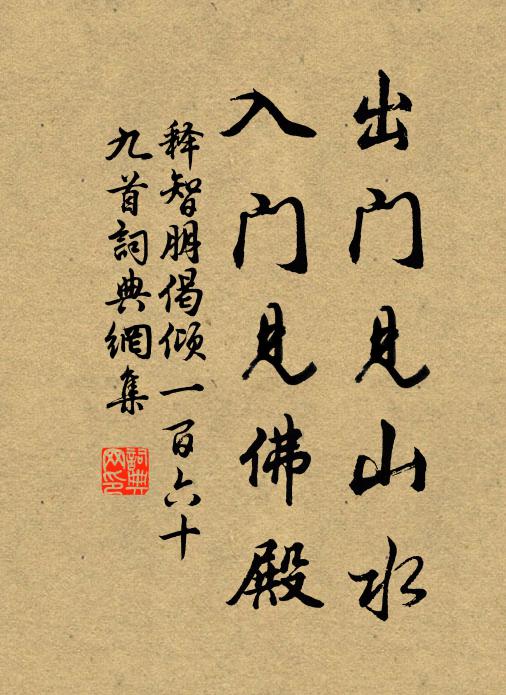 出门见山水
入门见佛殿
释智朋偈倾一百六十
九首詞典網集
詞典网印